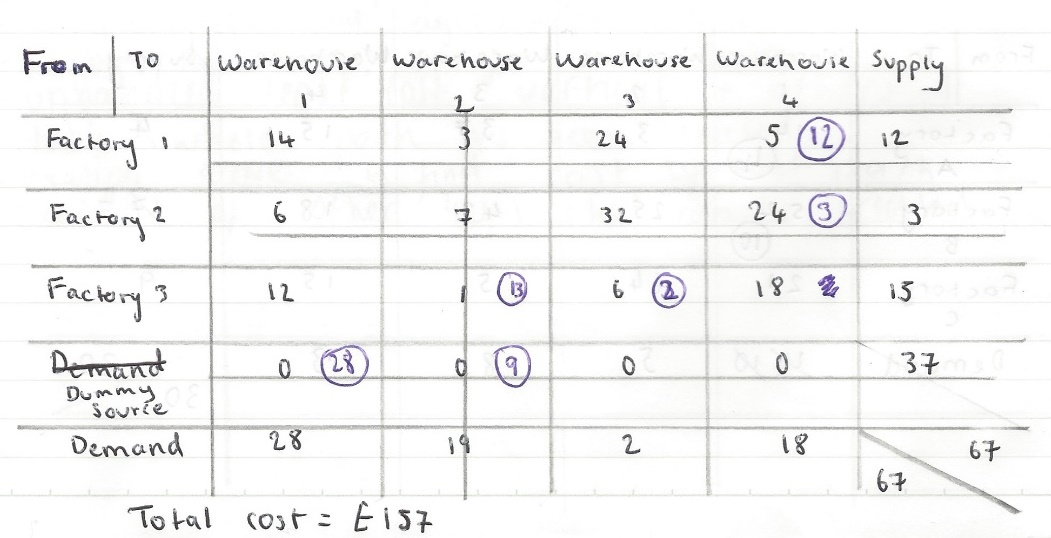 From TO Warehouse Warehouse Warehouse Warehouse Supply
1 2 3 4
Factory 1 14 3 24 5 12 12
Factory 2 6 7 32 24 3 3
Factory 3 12 1 13 6 2 18 15
Demand 0 28 0 9 0 0 37
Dummy
Source
Demand 28 19 2 18 67
67
Total cost = £157